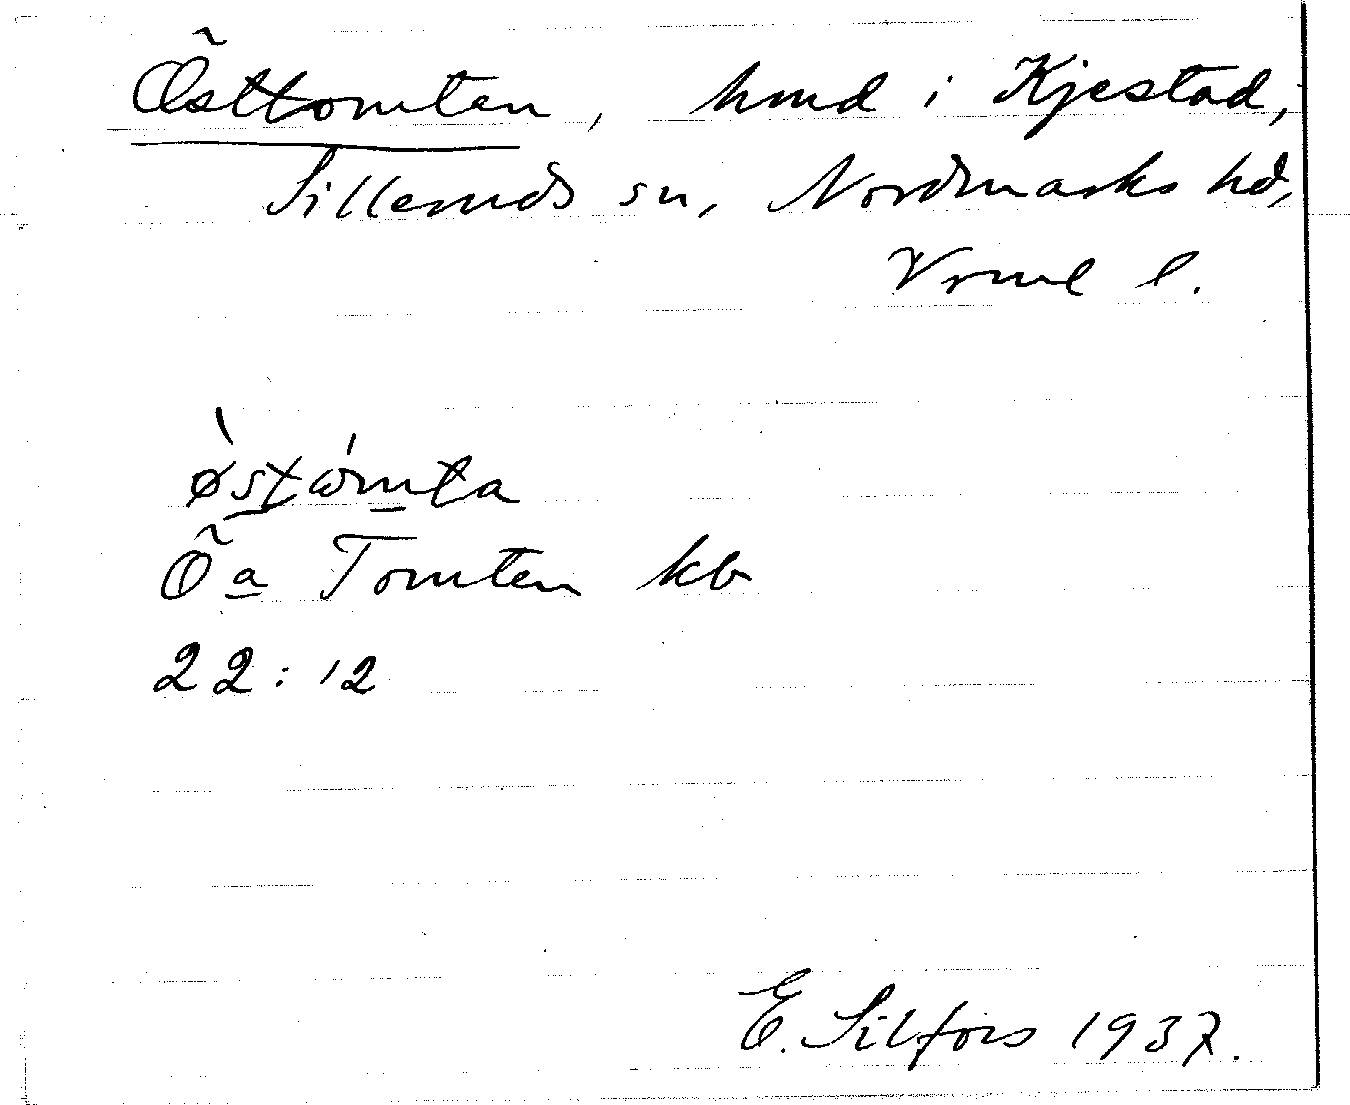 Östtomten, hmd i Kjestad,
Silleruds sn, Nordmarks hd,
Vrml l.
østòmta
Öa Tomten kb
22:12
E. Silfors 1937.